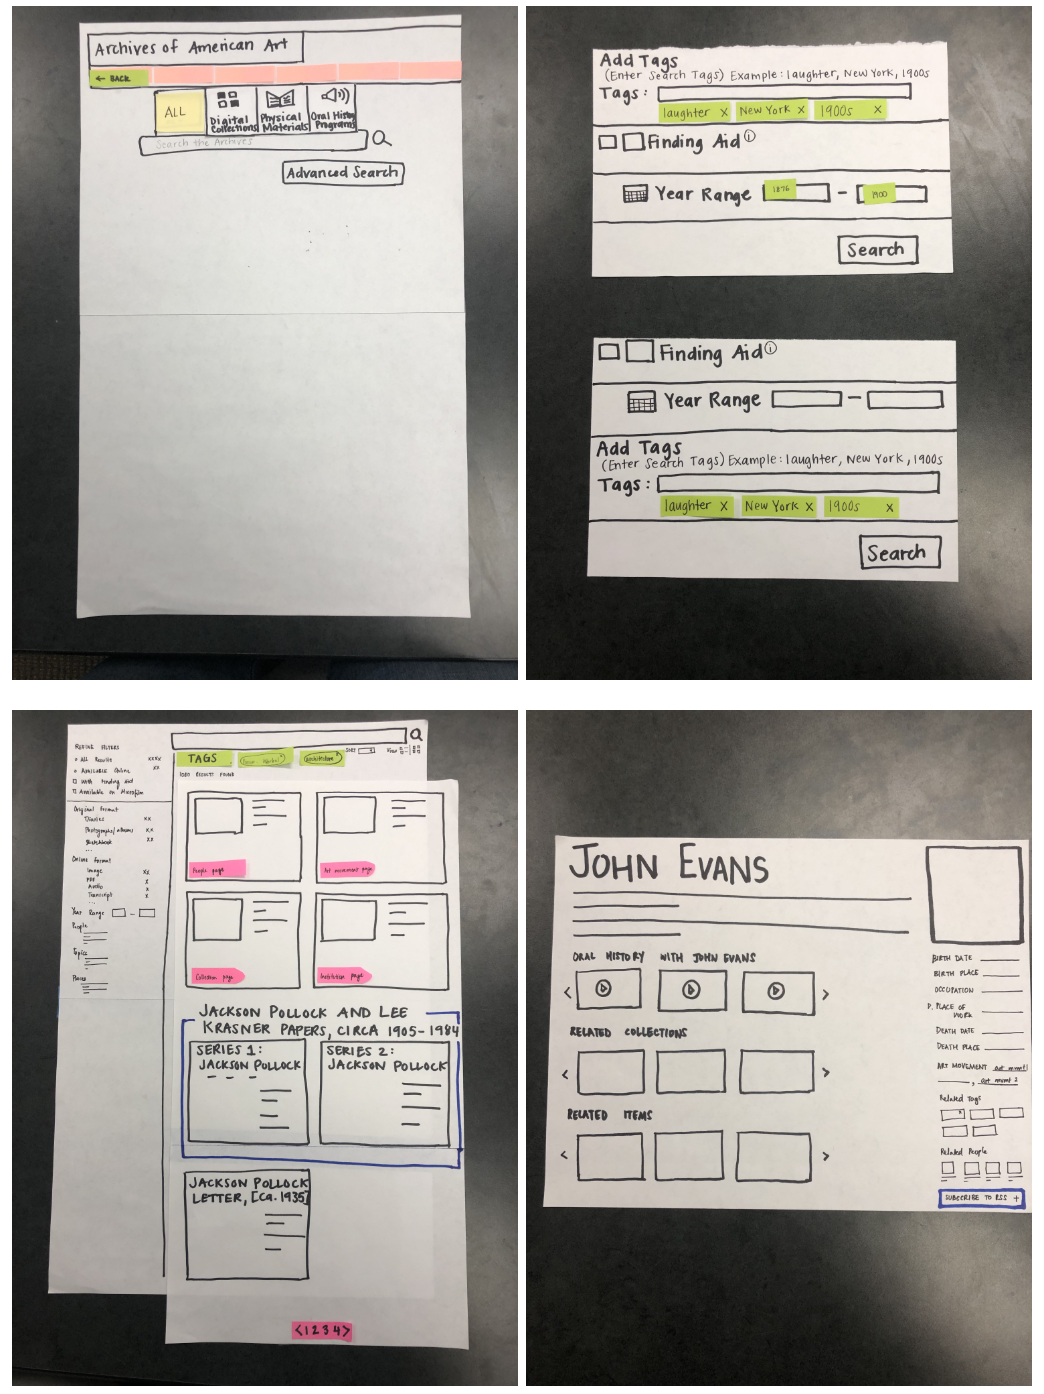 Archives of American Art
← BACK
ALL
Digital Collections
Physical Materials
Oral History Programs
Search the Archives
Advanced Search
Add Tags
(Enter Search Tags) Example: laughter, New York, 1900s
Tags:
laughter x New York x 1900s x
Finding Aid i
Year Range 1876 - 1900
Search
Finding Aid i
Year Range -
Add Tags
(Enter Search Tags) Example: laughter, New York, 1900s
Tags:
laughter x New York x 1900s x
Search
REFINE FILTERS
All Results xxxx
Available Online xx
With finding aid
Available on Microfilm
Original Format
Diaries xx
Photographs/albums xx
Sketchbook xx
...
Online Format
Image xx
PDF x
Audio x
Transcript x
...
Year Range -
People
Topics
Places
TAGS
SORT
View
RESULTS FOUND
People page
Art movement page
Collection page
Institution page
JACKSON POLLOCK AND LEE
KRASNER PAPERS, CIRCA 1905-1984
SERIES 1:
JACKSON POLLOCK
SERIES 2:
JACKSON POLLOCK
JACKSON POLLOCK
LETTER, [ca. 1935]
<1 2 3 4>
JOHN EVANS
ORAL HISTORY WITH JOHN EVANS
< >
RELATED COLLECTIONS
< >
RELATED ITEMS
< >
BIRTH DATE
BIRTH PLACE
OCCUPATION
P. PLACE OF
WORK
DEATH DATE
DEATH PLACE
ART MOVEMENT
Related Tags
Related People
SUBSCRIBE TO RSS +